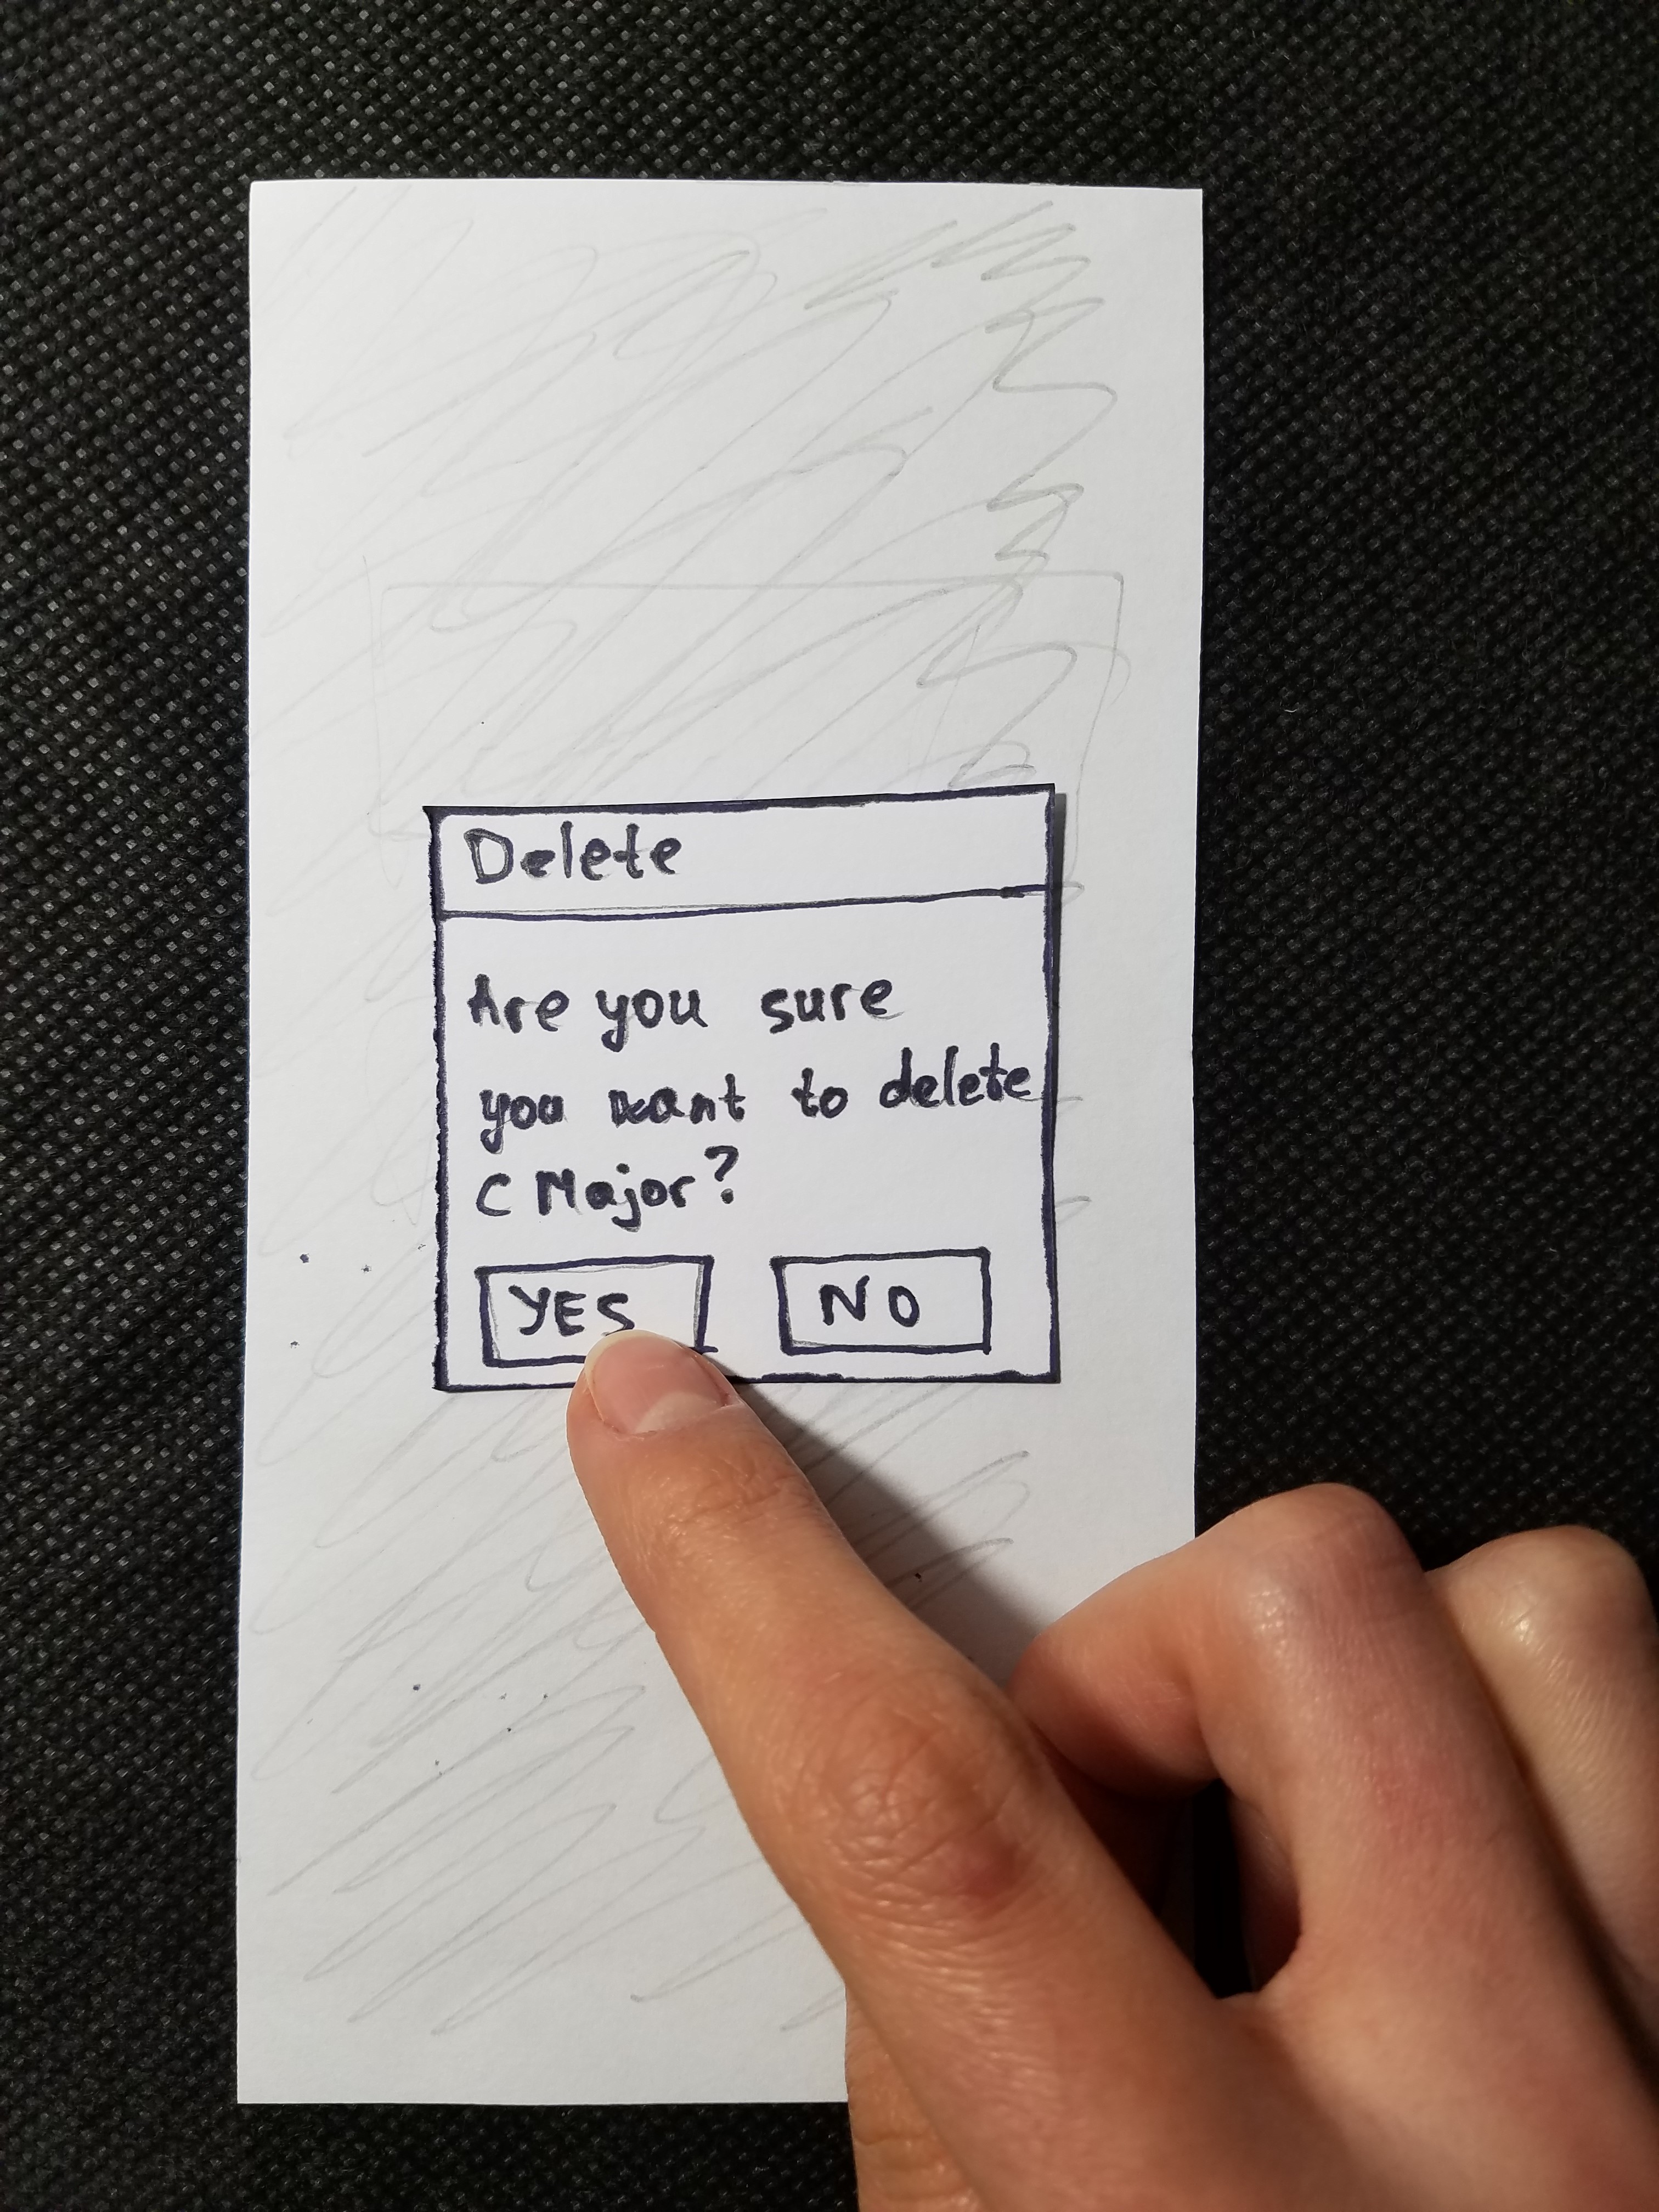 Delete
Are you sure
you want to delete
C Major?
YES NO